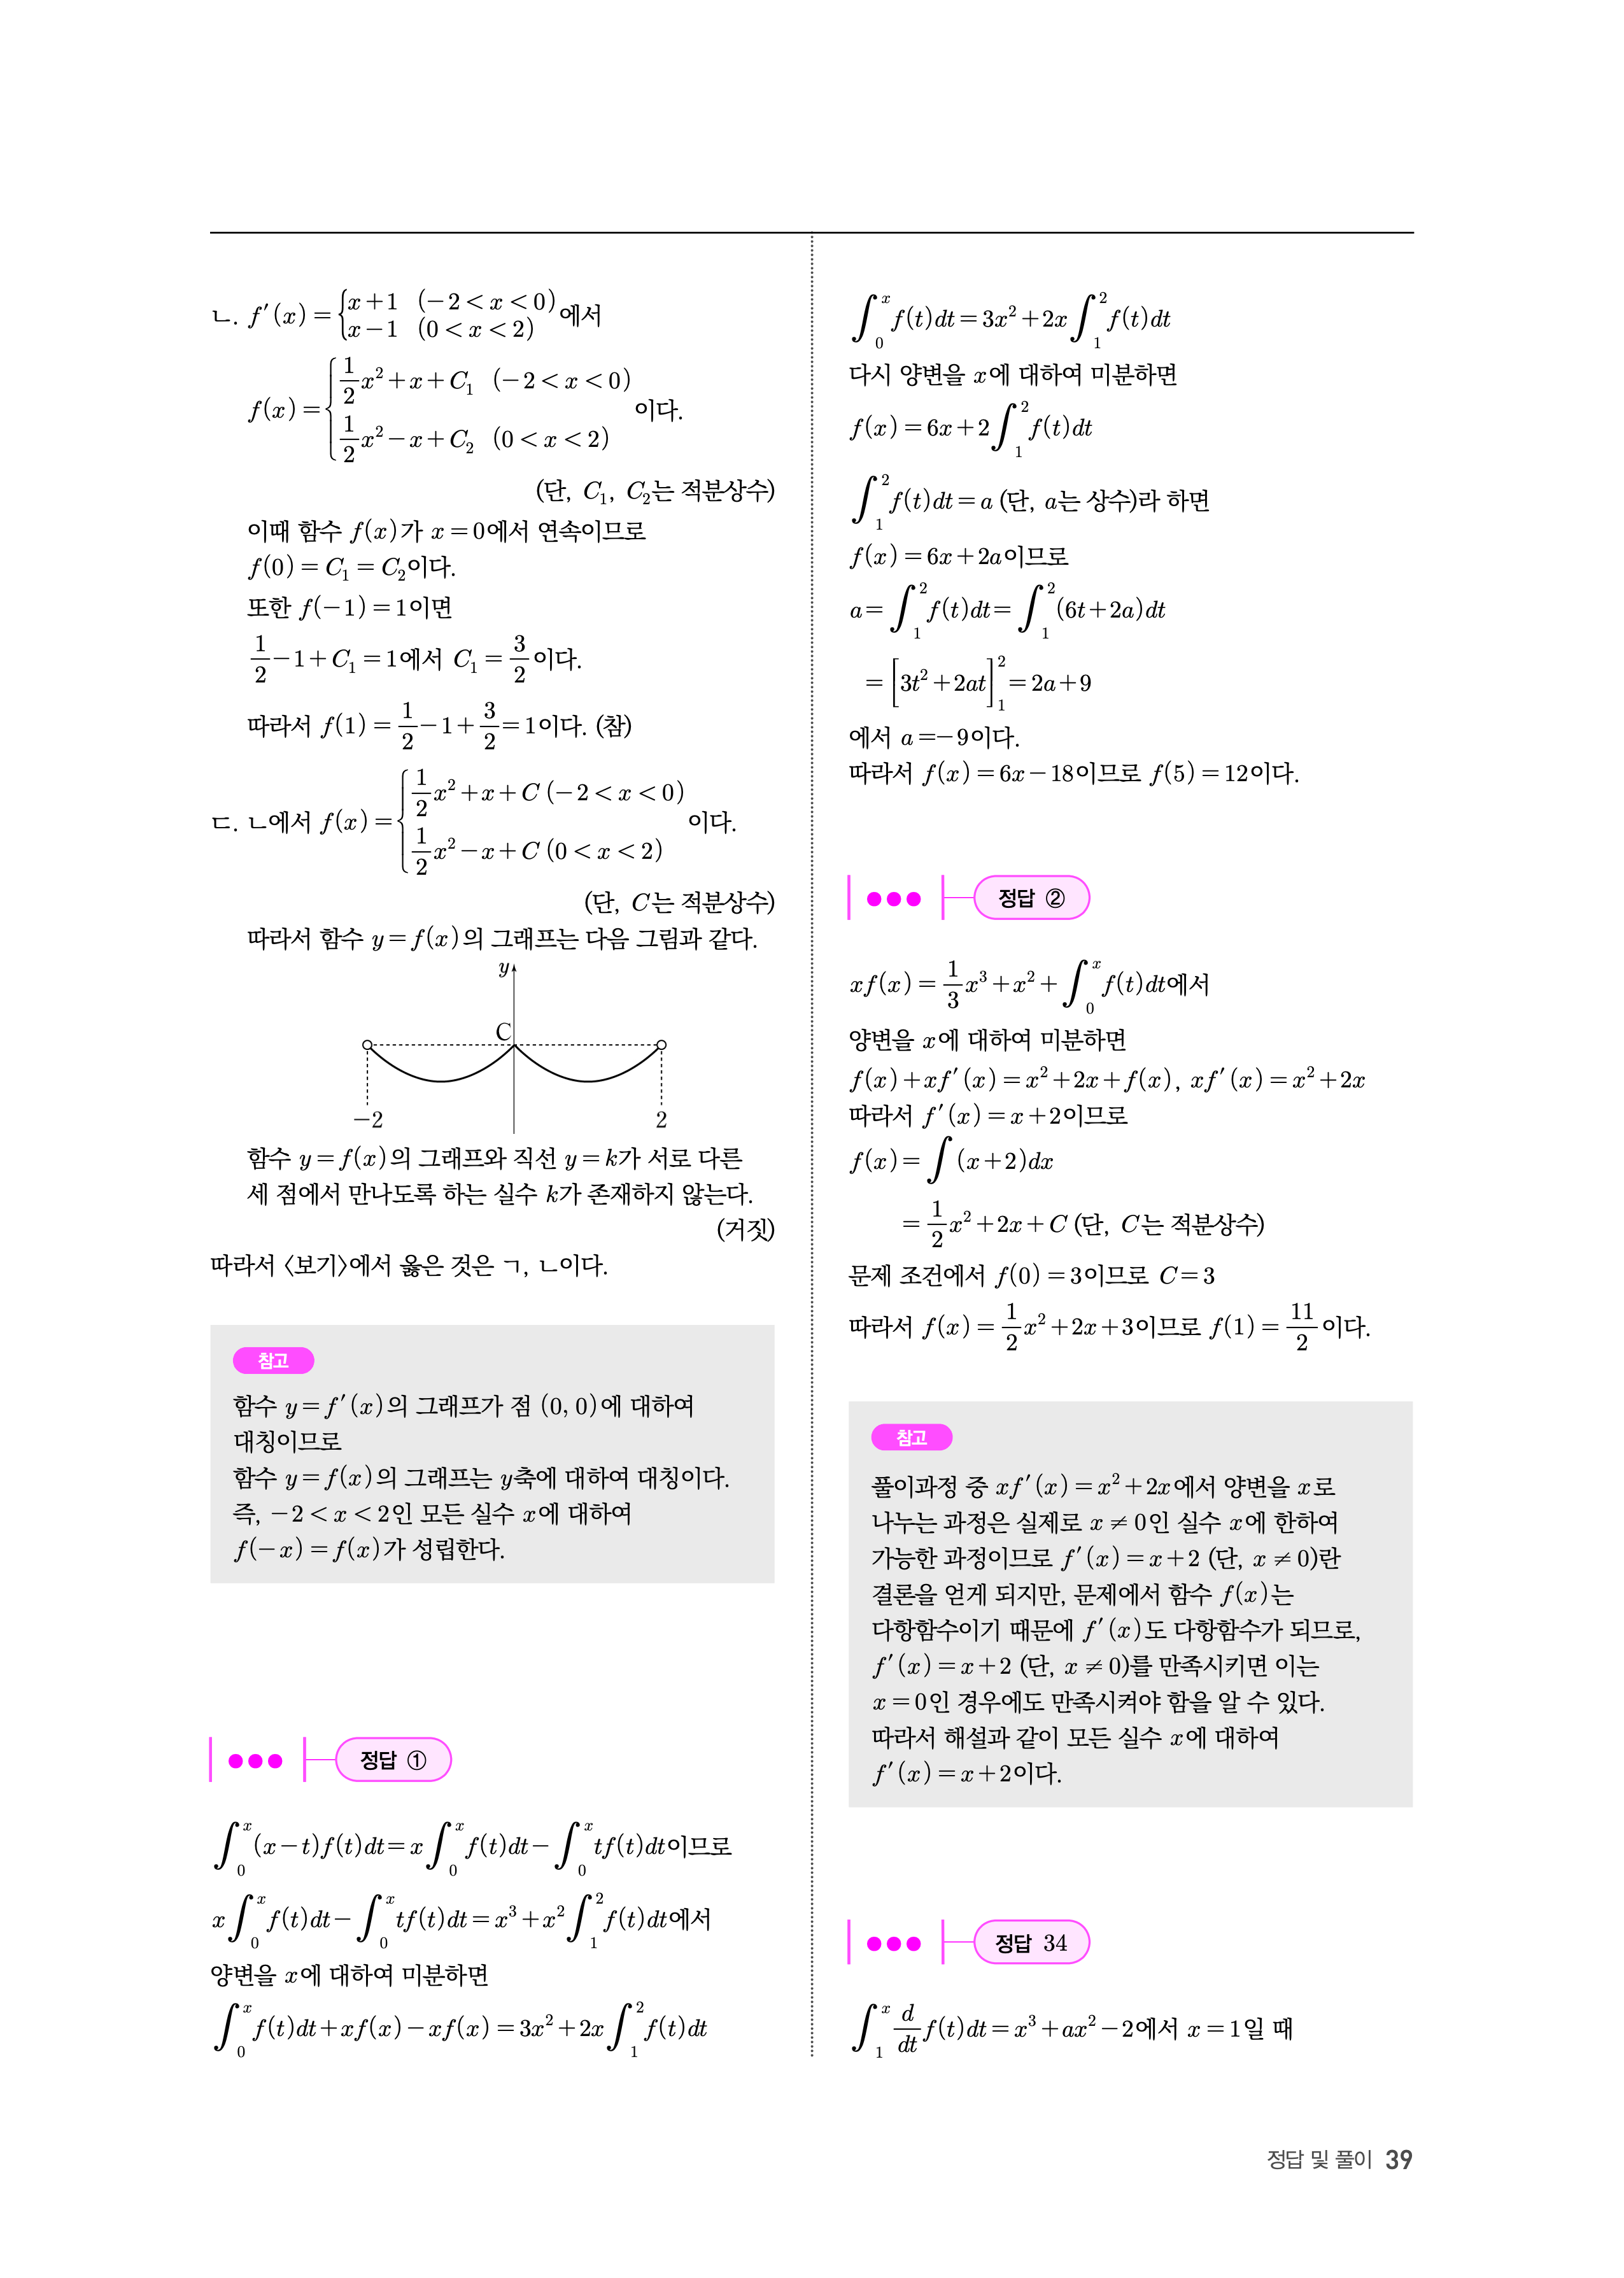 ㄴ. f′(x) = { x+1 (−2 < x < 0) x−1 (0 < x < 2) 에서
f(x) = { 1/2 x² + x + C₁ (−2 < x < 0) 1/2 x² − x + C₂ (0 < x < 2) 이다.
(단, C₁, C₂는 적분상수)
이때 함수 f(x)가 x = 0에서 연속이므로
f(0) = C₁ = C₂이다.
또한 f(−1) = 1이면
1/2 − 1 + C₁ = 1에서 C₁ = 3/2 이다.
따라서 f(1) = 1/2 − 1 + 3/2 = 1이다. (참)
ㄷ. ㄴ에서 f(x) = { 1/2 x² + x + C (−2 < x < 0) 1/2 x² − x + C (0 < x < 2) 이다.
(단, C는 적분상수)
따라서 함수 y = f(x)의 그래프는 다음 그림과 같다.
y
C
−2 2
함수 y = f(x)의 그래프와 직선 y = k가 서로 다른
세 점에서 만나도록 하는 실수 k가 존재하지 않는다.
(거짓)
따라서 〈보기〉에서 옳은 것은 ㄱ, ㄴ이다.
참고
함수 y = f′(x)의 그래프가 점 (0, 0)에 대하여
대칭이므로
함수 y = f(x)의 그래프는 y축에 대하여 대칭이다.
즉, −2 < x < 2인 모든 실수 x에 대하여
f(−x) = f(x)가 성립한다.
정답 ①
∫₀ˣ (x−t)f(t)dt = x∫₀ˣ f(t)dt − ∫₀ˣ tf(t)dt이므로
x∫₀ˣ f(t)dt − ∫₀ˣ tf(t)dt = x³ + x²∫₁² f(t)dt에서
양변을 x에 대하여 미분하면
∫₀ˣ f(t)dt + xf(x) − xf(x) = 3x² + 2x∫₁² f(t)dt
∫₀ˣ f(t)dt = 3x² + 2x∫₁² f(t)dt
다시 양변을 x에 대하여 미분하면
f(x) = 6x + 2∫₁² f(t)dt
∫₁² f(t)dt = a (단, a는 상수)라 하면
f(x) = 6x + 2a이므로
a = ∫₁² f(t)dt = ∫₁² (6t+2a)dt
= [3t² + 2at]₁² = 2a + 9
에서 a = −9이다.
따라서 f(x) = 6x − 18이므로 f(5) = 12이다.
정답 ②
xf(x) = 1/3 x³ + x² + ∫₀ˣ f(t)dt에서
양변을 x에 대하여 미분하면
f(x) + xf′(x) = x² + 2x + f(x), xf′(x) = x² + 2x
따라서 f′(x) = x + 2이므로
f(x) = ∫(x+2)dx
= 1/2 x² + 2x + C (단, C는 적분상수)
문제 조건에서 f(0) = 3이므로 C = 3
따라서 f(x) = 1/2 x² + 2x + 3이므로 f(1) = 11/2 이다.
참고
풀이과정 중 xf′(x) = x² + 2x에서 양변을 x로
나누는 과정은 실제로 x ≠ 0인 실수 x에 한하여
가능한 과정이므로 f′(x) = x + 2 (단, x ≠ 0)란
결론을 얻게 되지만, 문제에서 함수 f(x)는
다항함수이기 때문에 f′(x)도 다항함수가 되므로,
f′(x) = x + 2 (단, x ≠ 0)를 만족시키면 이는
x = 0인 경우에도 만족시켜야 함을 알 수 있다.
따라서 해설과 같이 모든 실수 x에 대하여
f′(x) = x + 2이다.
정답 34
∫₁ˣ d/dt f(t)dt = x³ + ax² − 2에서 x = 1일 때
정답 및 풀이 39